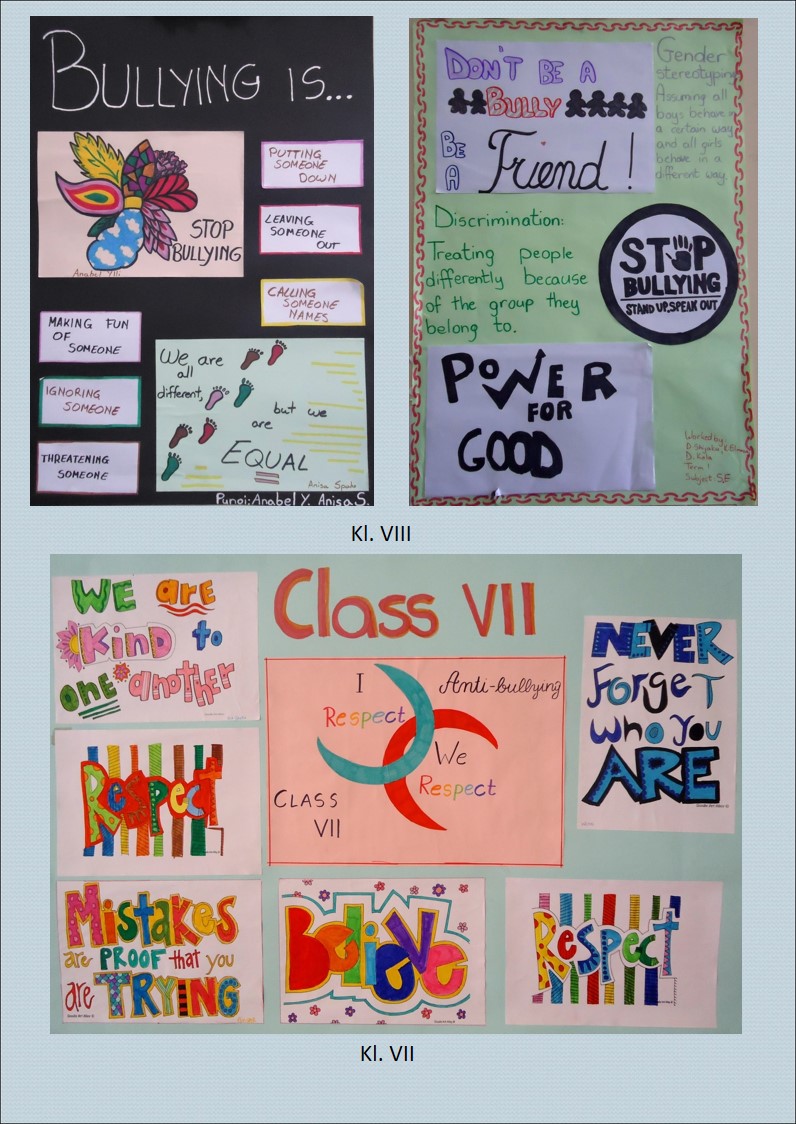 BULLYING IS...
STOP
BULLYING
Anabel Ylli
PUTTING
SOMEONE
DOWN
LEAVING
SOMEONE
OUT
CALLING
SOMEONE
NAMES
MAKING FUN
OF
SOMEONE
IGNORING
SOMEONE
THREATENING
SOMEONE
We are
all
different,
but we
are
EQUAL
Anisa Spaho
Punoi: Anabel Y. Anisa S.
DON'T BE A
BULLY
BE
A
Friend!
Gender
stereotyping
Assuming all
boys behave in
a certain way
and all girls
behave in a
different way.
Discrimination:
Treating people
differently because
of the group they
belong to.
STOP
BULLYING
STAND UP. SPEAK OUT
POWER
FOR
GOOD
Worked by:
D.
D. Kola
Term 1
Subject: S.E
Kl. VIII
Class VII
WE are
KIND to
one another
Respect
Mistakes
are PROOF that you
are TRYING
I
Respect
Anti-bullying
We
Respect
CLASS
VII
Believe
NEVER
Forget
who you
ARE
Respect
Kl. VII